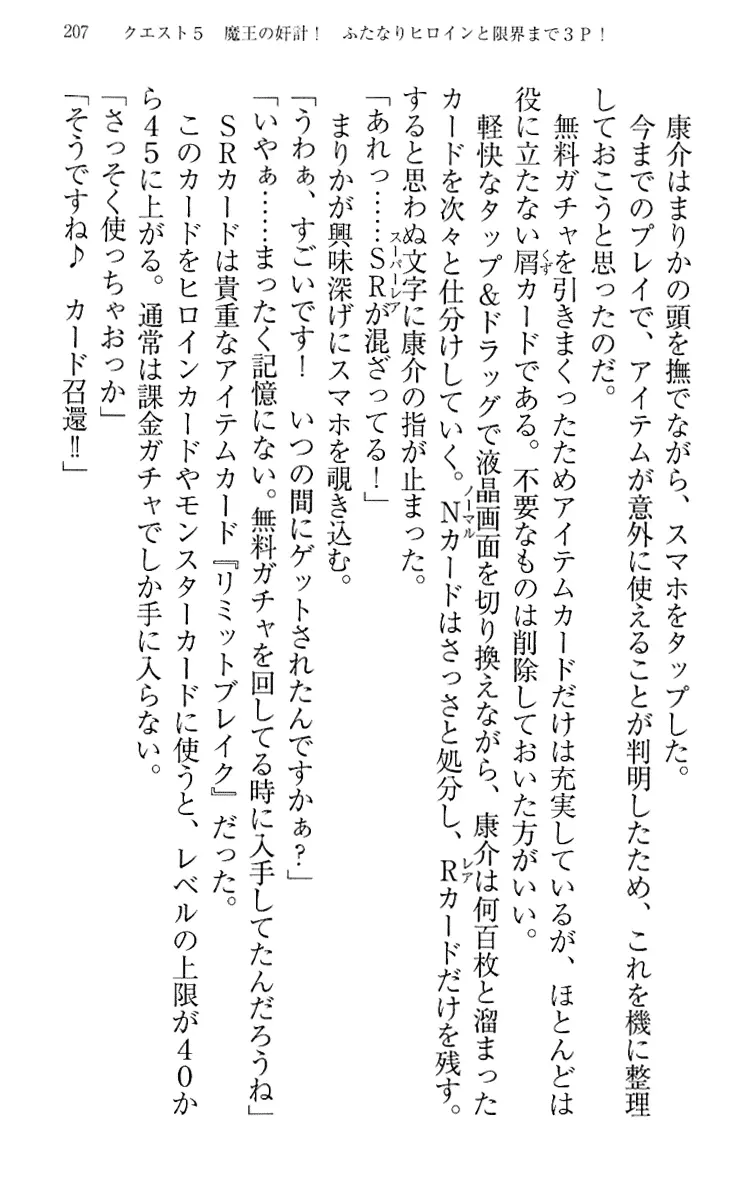 207　クエスト5　魔王の奸計！　ふたなりヒロインと限界まで3P！
　康介はまりかの頭を撫でながら、スマホをタップした。
　今までのプレイで、アイテムが意外に使えることが判明したため、これを機に整理
しておこうと思ったのだ。
　無料ガチャを引きまくったためアイテムカードだけは充実しているが、ほとんどは
役に立たない屑カードである。不要なものは削除しておいた方がいい。
　軽快なタップ＆ドラッグで液晶画面を切り換えながら、康介は何百枚と溜まった
カードを次々と仕分けしていく。Nカードはさっさと処分し、Rカードだけを残す。
すると思わぬ文字に康介の指が止まった。
「あれっ……SRが混ざってる！」
　まりかが興味深げにスマホを覗き込む。
「うわぁ、すごいです！　いつの間にゲットされたんですかぁ？」
「いやぁ……まったく記憶にない。無料ガチャを回してる時に入手してたんだろうね」
　SRカードは貴重なアイテムカード『リミットブレイク』だった。
　このカードをヒロインカードやモンスターカードに使うと、レベルの上限が40か
ら45に上がる。通常は課金ガチャでしか手に入らない。
「さっそく使っちゃおっか」
「そうですね♪　カード召還‼」